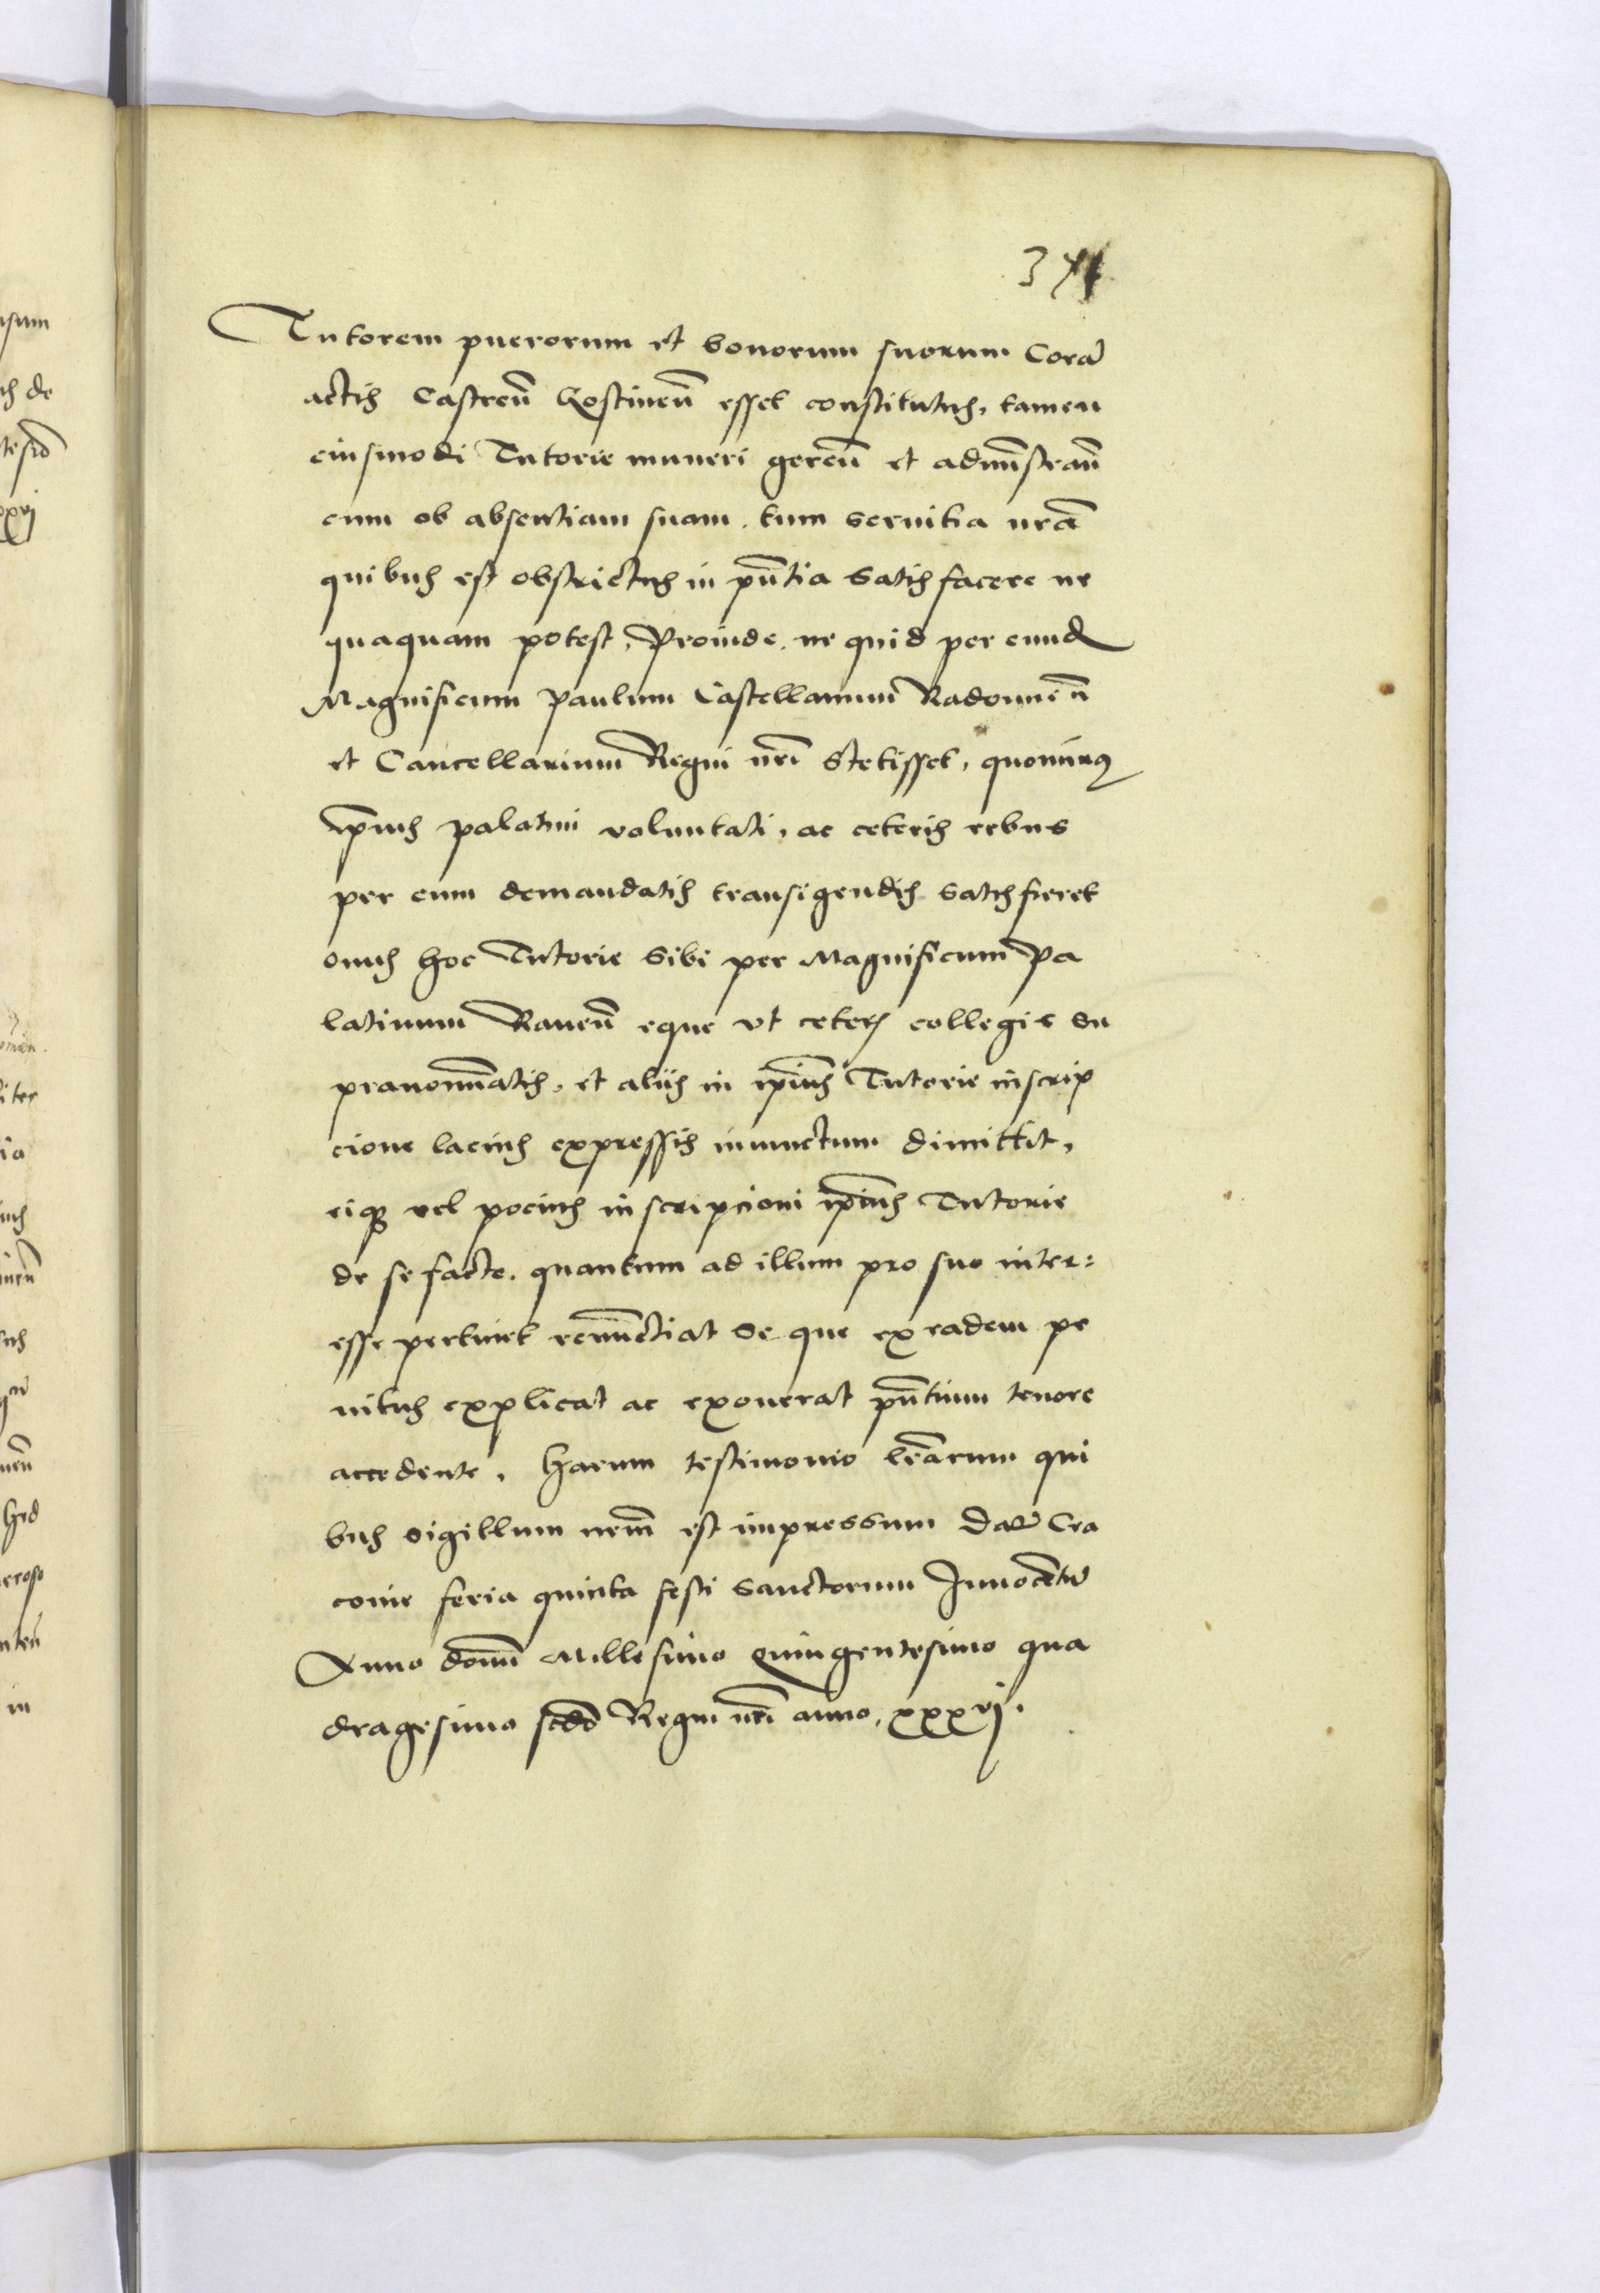 Tutorem puerorum et bonorum suorum Corã
actis Castreñ Gostineñ esset constitutus, tamen
eiusmodi Tutorie muneri gereñ et admĩstrañ
cum ob absentiam suam, tum servitia nrã
quibus est obstrictus in pñtia satisfacere ne
quaquam potest, Proinde, ne quid per eund
Magnificum Paulum Castellanum Radomieñ
et Cancellarium Regni nrĩ stetisset, quominus
ip̃ius palatini voluntati, ac ceteris rebus
per eum demandatis transigendis satisfieret
onus hoc Tutorie sibi per Magnificum Pa
latinum Raveñ eque ut ceteris collegis su
pranomĩatis, et aliis in ip̃ius Tutorie inscrip
cione lacius expressis iniunctum dimittit,
eiqз vel pocius inscripcioni ip̃ius Tutorie
de se facte, quantum ad illum pro suo inter:
esse pertinet renũctiat se que ex eadem pe
nitus explicat ac exonerat pñtium tenore
accedente, harum testimonio lr̃arum qui
bus sigillum nrm̃ est impressum Datũ Cra
covie feria quinta festi sanctorum Innocẽtũ
Anno domĩ Millesimo quingentesimo qua
dragesimo scdo Regni nrĩ anno, xxxvj.